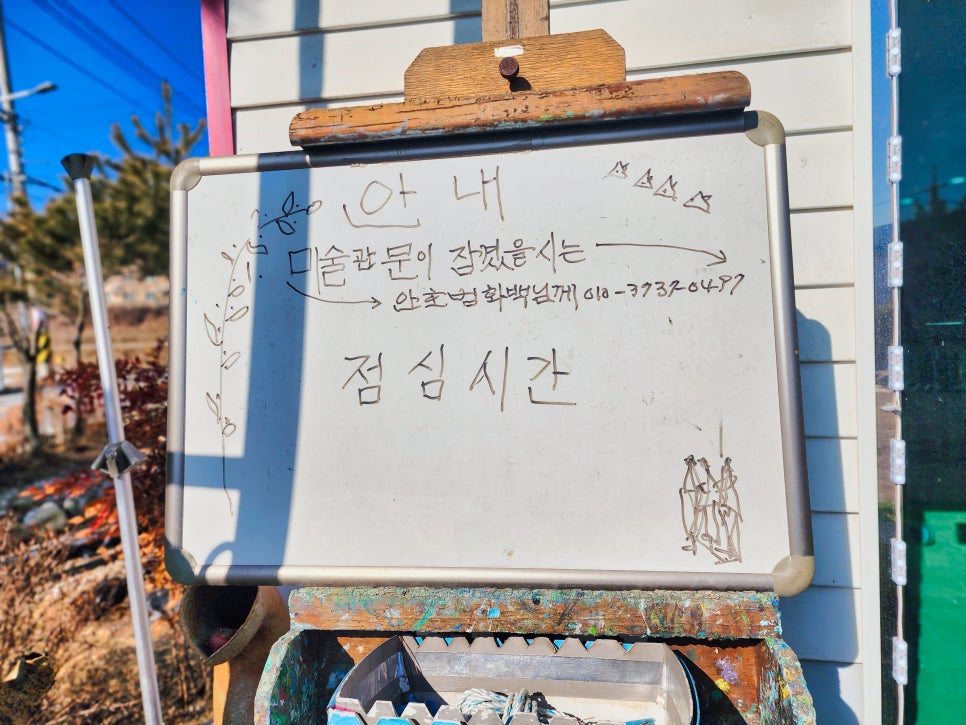 안내
미술관 문이 잠겼을시는
안호범화백님께 010-3737-0497
점심시간